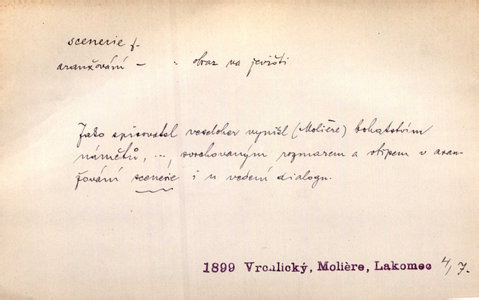 scenerie f.
aranžování – " obraz na jevišti
Jako spisovatel veseloher vynikl (Molière) bohatstvím
námětů, ..., svrchovaným rozmarem a vtipem v aran-
žování scenerie i u vedení dialogu.
1899 Vrchlický, Molière, Lakomec 4/7.